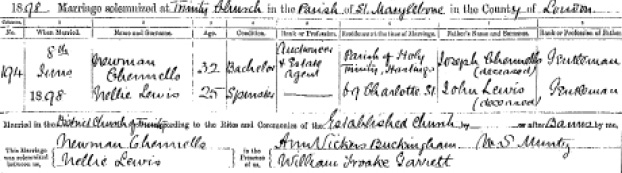 1898. Marriage solemnized at Trinity Church in the Parish of St. Marylebone in the County of London
No. When Married. Name and Surname. Age. Condition. Rank or Profession. Residence at the time of Marriage. Father's Name and Surname. Rank or Profession of Father.
194 8th June 1898 Newman Chennells 32 Bachelor Auctioneer & Estate Agent Parish of Holy Trinity, Hastings Joseph Chennells (deceased) Gentleman
Nellie Lewis 25 Spinster 69 Charlotte St. John Lewis (deceased) Gentleman
Married in the District Church of Trinity according to the Rites and Ceremonies of the Established Church by or after Banns by me,
This Marriage was solemnized between us Newman Chennells Nellie Lewis in the Presence of us Ann Vickers Buckingham William Froake Garrett W. S. Muntz